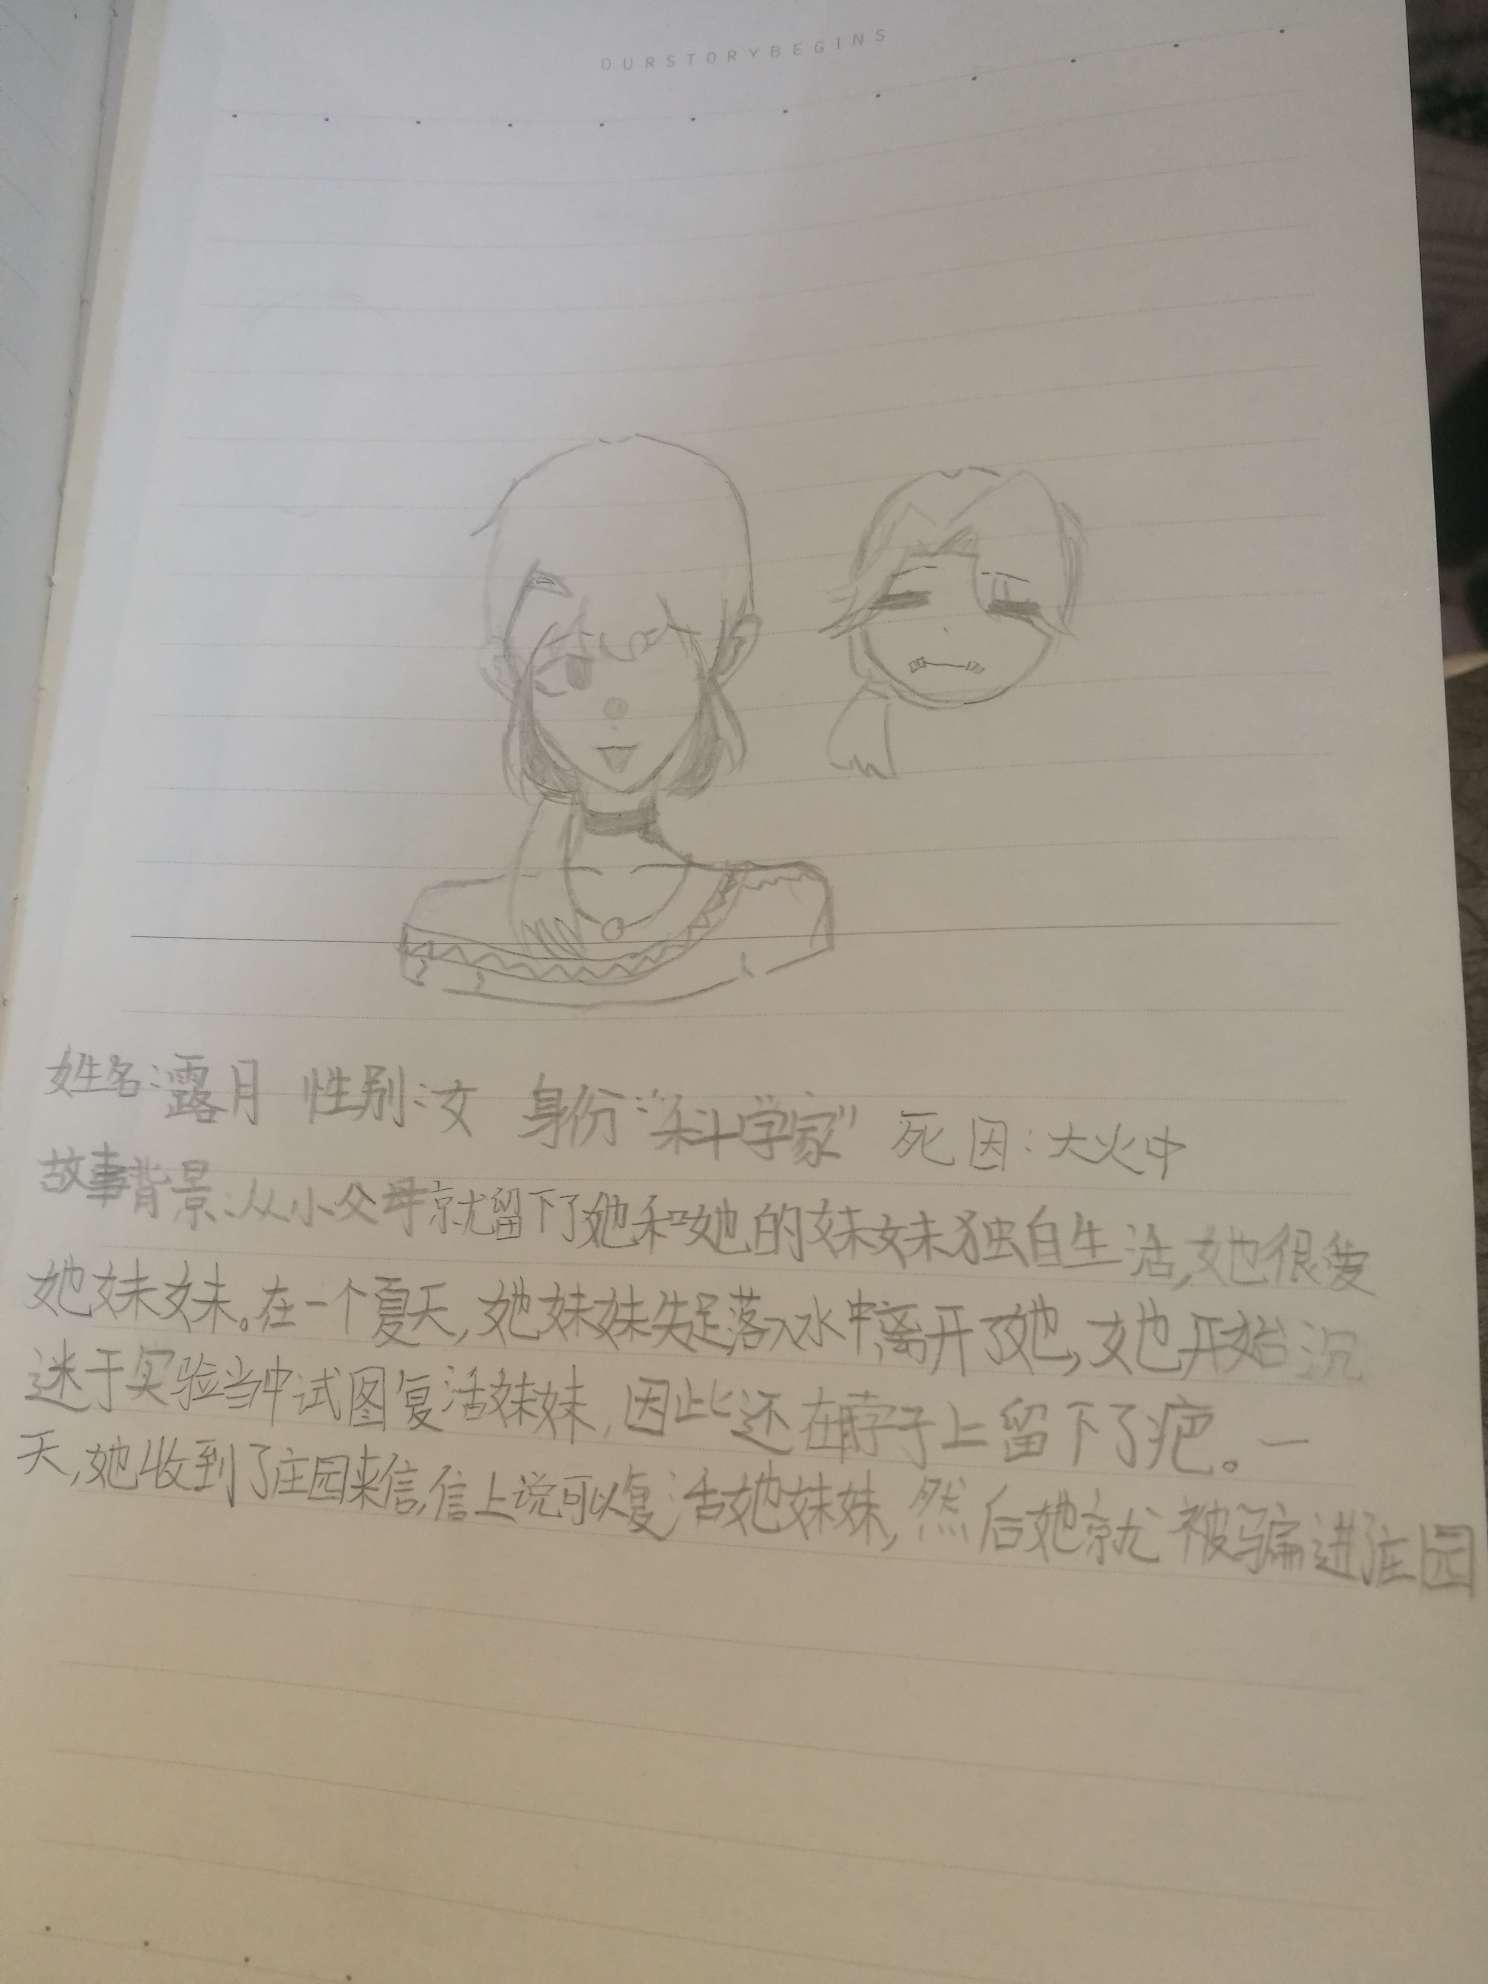 OURSTORYBEGINS
姓名:露月 性别:女 身份:"科学家" 死因:大火中
故事背景:从小父母就留下了她和她的妹妹独自生活,她很爱
她妹妹。在一个夏天,她妹妹失足落入水中离开了她,她开始沉
迷于实验当中试图复活妹妹,因此还在脖子上留下了疤。一
天,她收到了庄园来信,信上说可以复活她妹妹,然后她就被骗进庄园